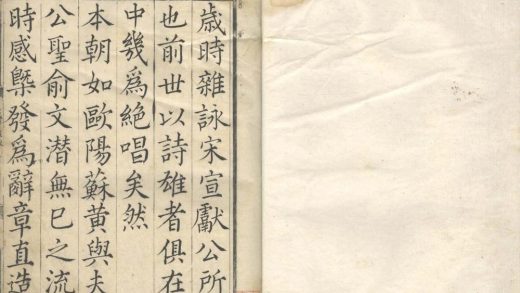 歲時雜詠宋宣獻公所
也前世以詩雄者俱在
中幾爲絶唱矣然
本朝如歐陽蘇黃與夫
公聖俞文潛無已之流
時感槩發爲辭章直造